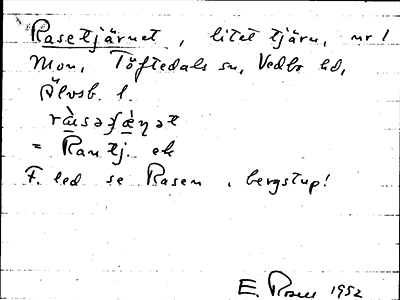 Rasetjärnet, litet tjärn, nr 1
Mon, Töftedals sn, Vedbo hd,
Älvsb. l.
ràsəʃæ̀ṇət
= Ran tj. ek
F. led se Rasen, bergstup!
E. 1952